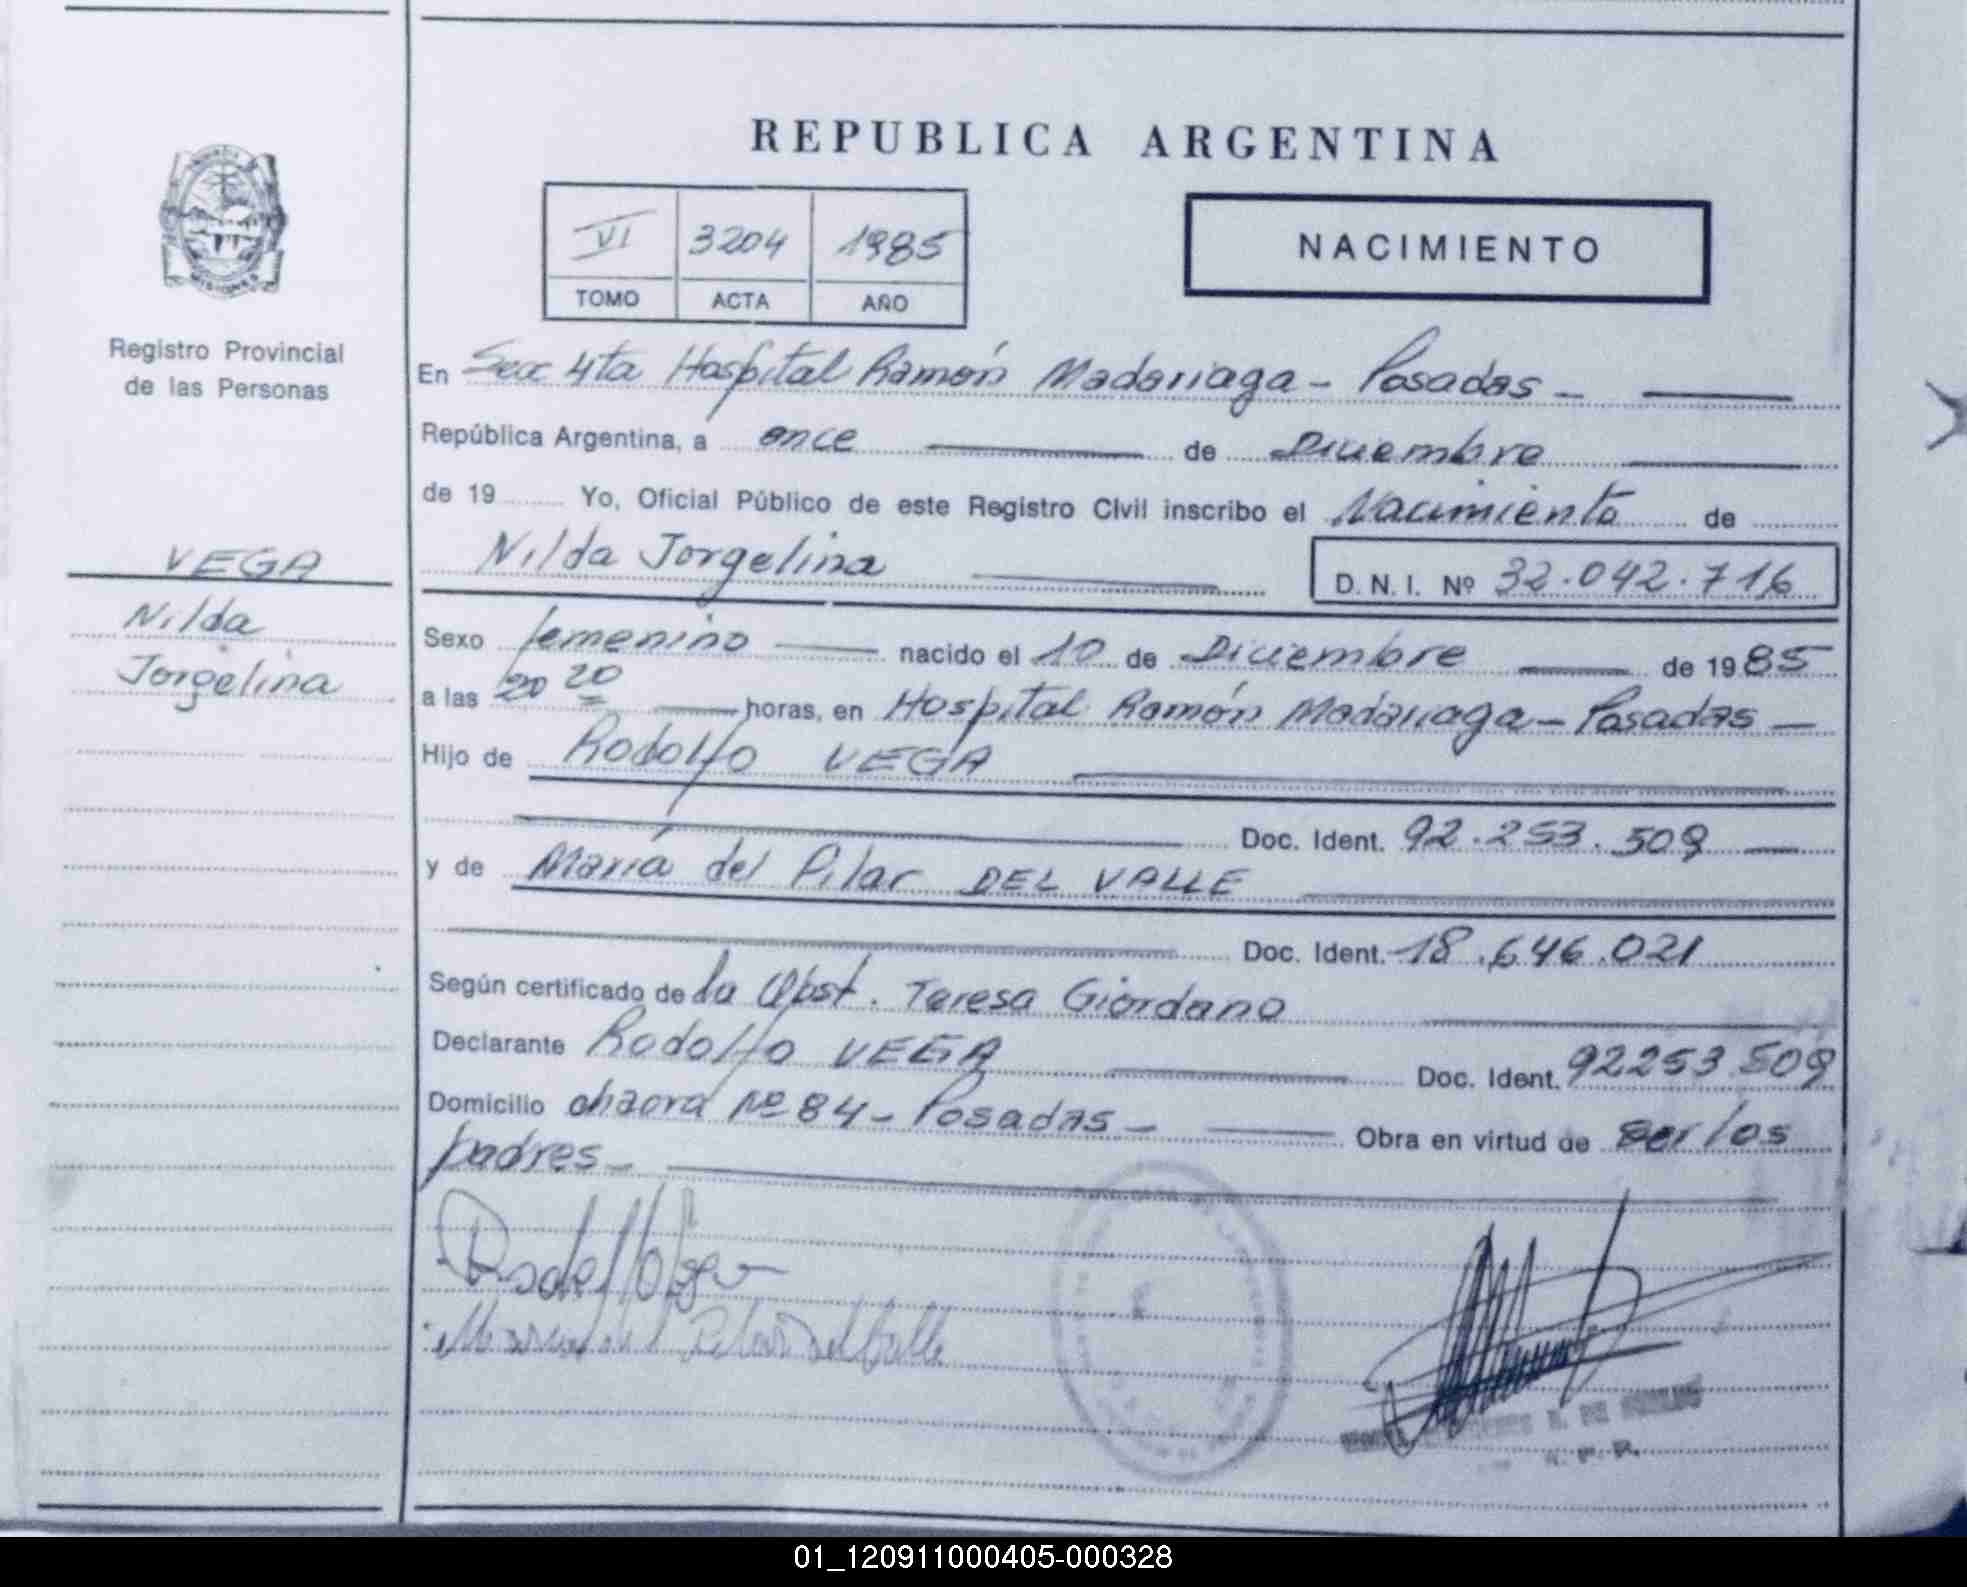 REPUBLICA ARGENTINA
VI 3204 1985
TOMO ACTA AÑO
NACIMIENTO
MISIONES
Registro Provincial
de las Personas
VEGA
Nilda
Jorgelina
En Sec 4ta Hospital Ramón Madariaga - Posadas -
República Argentina, a once de Diciembre
de 19 Yo, Oficial Público de este Registro Civil inscribo el Nacimiento de
Nilda Jorgelina
D. N. I. Nº 32.042.716
Sexo femenino nacido el 10 de Diciembre de 1985
a las 20 20 horas, en Hospital Ramón Madariaga - Posadas -
Hijo de Rodolfo VEGA
Doc. Ident. 92.253.509
y de María del Pilar DEL VALLE
Doc. Ident. 18.646.021
Según certificado de la Obst. Teresa Giordano
Declarante Rodolfo VEGA Doc. Ident. 92253509
Domicilio chacra Nº 84 - Posadas - Obra en virtud de ser los
padres -
Rodolfo Vega
Maria del Pilar del Valle
01_120911000405-000328